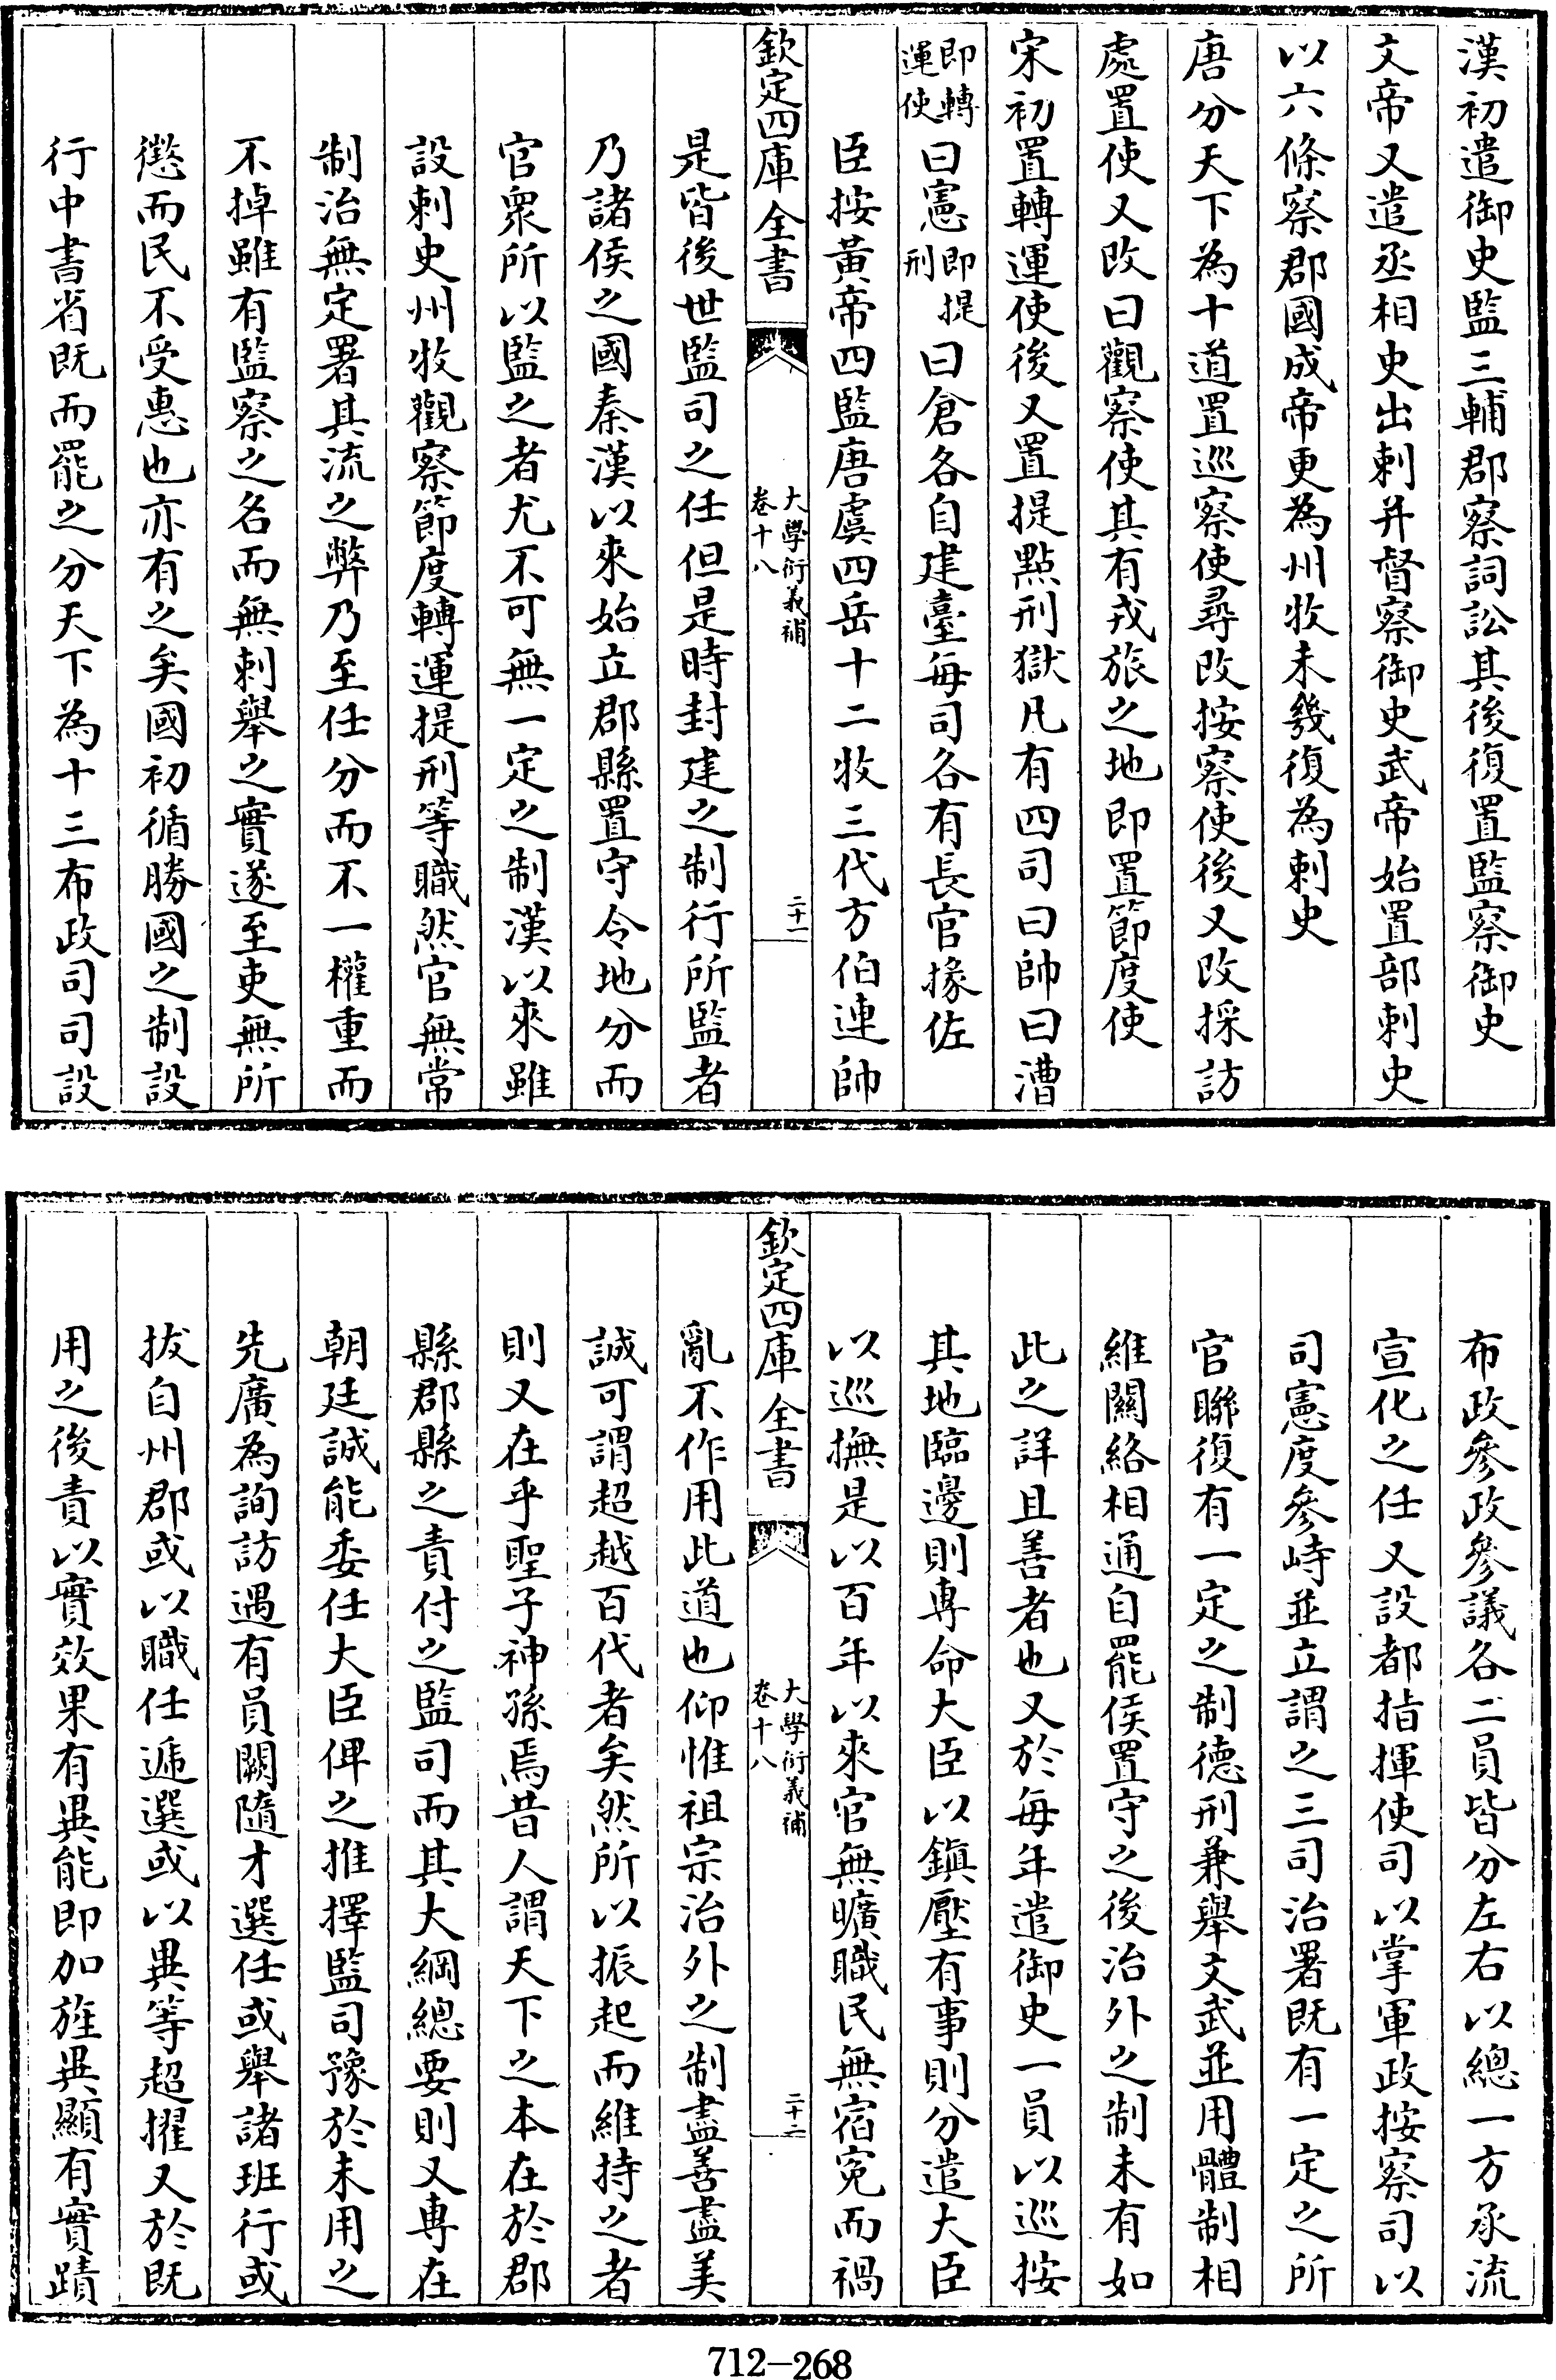 漢初遣御史監三輔郡察詞訟其後復置監察御史
文帝又遣丞相史出刺并督察御史武帝始置部刺史
以六條察郡國成帝更為州牧未幾復為刺史
唐分天下為十道置巡察使尋改按察使後又改採訪
處置使又改曰觀察使其有戎旅之地即置節度使
宋初置轉運使後又置提點刑獄凡有四司曰帥曰漕
即轉運使曰憲即提刑曰倉各自建臺每司各有長官掾佐
臣按黃帝四監唐虞四岳十二牧三代方伯連帥
欽定四庫全書
大學衍義補
卷十八
二十一
是皆後世監司之任但是時封建之制行所監者
乃諸侯之國秦漢以來始立郡縣置守令地分而
官衆所以監之者尤不可無一定之制漢以來雖
設刺史州牧觀察節度轉運提刑等職然官無常
制治無定署其流之弊乃至任分而不一權重而
不掉雖有監察之名而無刺舉之實遂至吏無所
懲而民不受惠也亦有之矣國初循勝國之制設
行中書省既而罷之分天下為十三布政司司設
布政參政參議各二員皆分左右以總一方承流
宣化之任又設都指揮使司以掌軍政按察司以
司憲度參峙並立謂之三司治署既有一定之所
官聯復有一定之制德刑兼舉文武並用體制相
維關絡相通自罷侯置守之後治外之制未有如
此之詳且善者也又於每年遣御史一員以巡按
其地臨邊則專命大臣以鎮壓有事則分遣大臣
以巡撫是以百年以來官無曠職民無宿寃而禍
欽定四庫全書
大學衍義補
卷十八
二十二
亂不作用此道也仰惟祖宗治外之制盡善盡美
誠可謂超越百代者矣然所以振起而維持之者
則又在乎聖子神孫焉昔人謂天下之本在於郡
縣郡縣之責付之監司而其大綱總要則又專在
朝廷誠能委任大臣俾之推擇監司豫於未用之
先廣為詢訪遇有員闕隨才選任或舉諸班行或
拔自州郡或以職任遞選或以異等超擢又於既
用之後責以實效果有異能即加旌異顯有實蹟
712-268